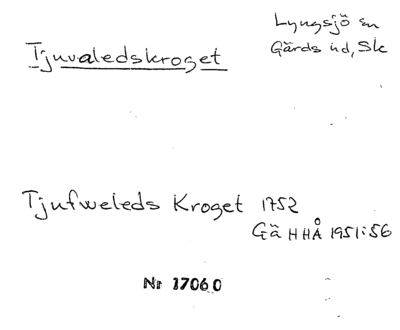 Lyngsjö sn
Gärds hd, Sk
Tjuvaledskroget
Tjufweleds Kroget 1752
Gä HHÅ 1951:56
Nr 17060